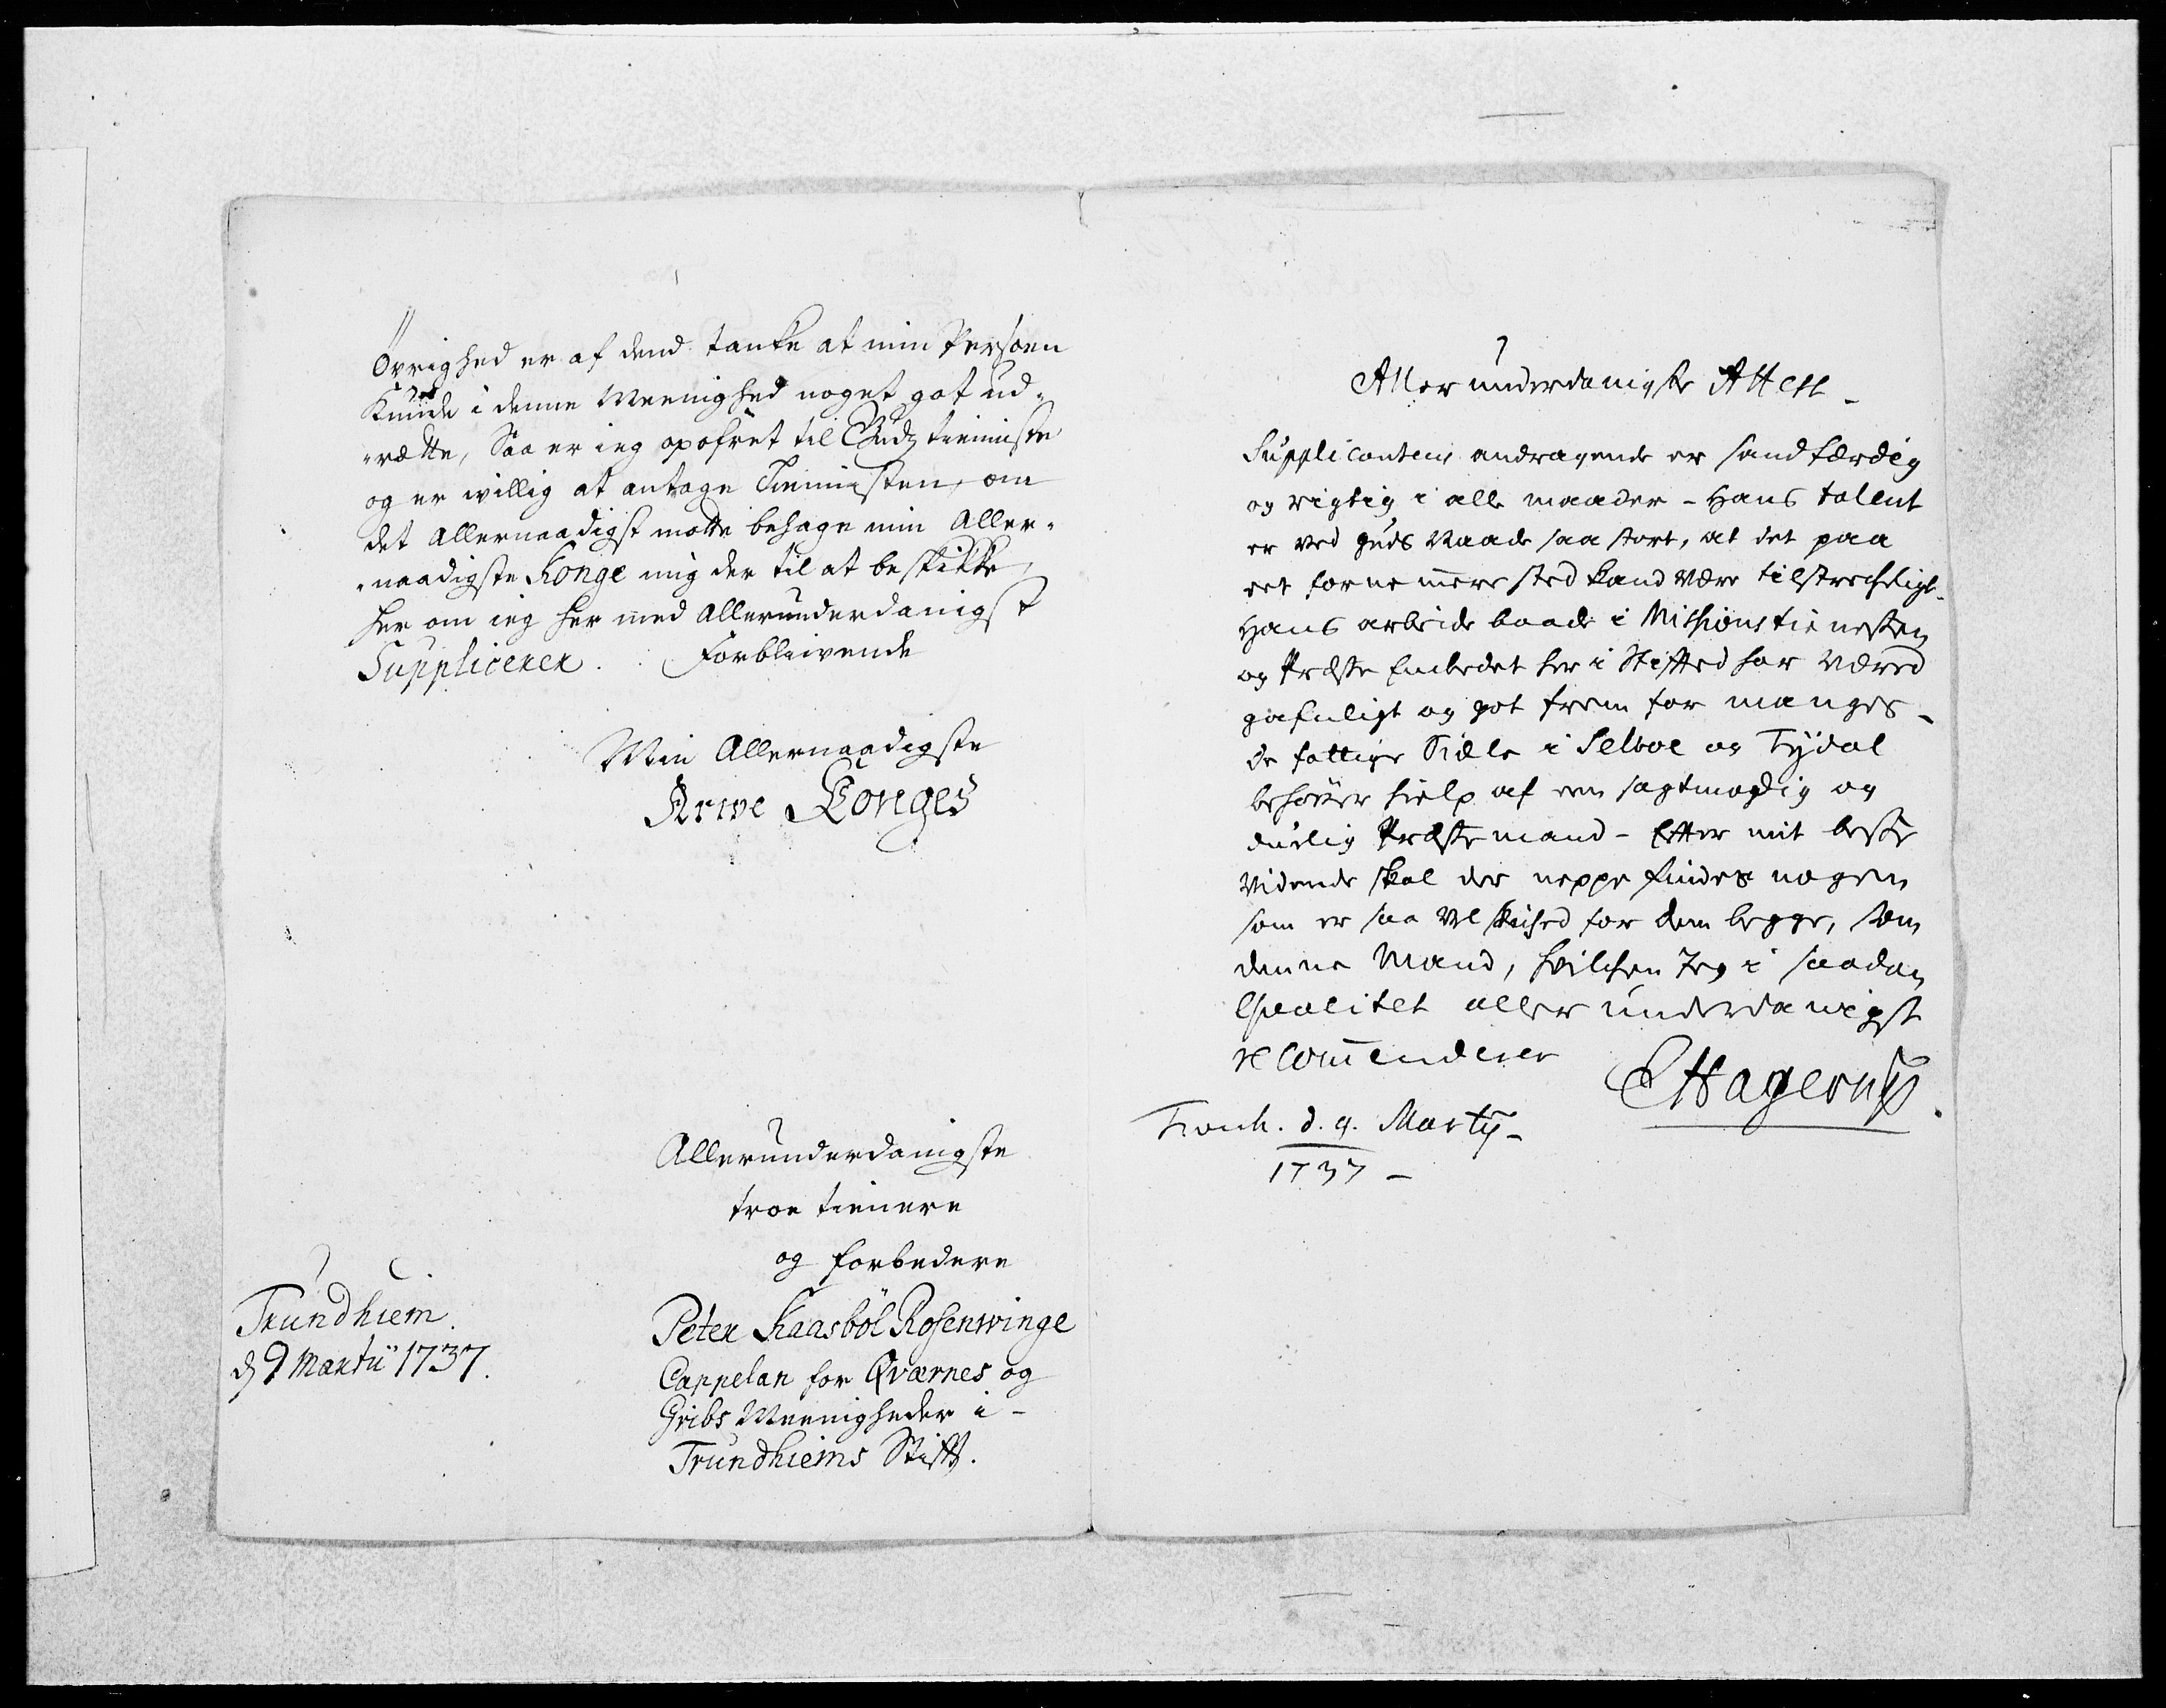 Øvrighed er af dend tanke at min Persoen
Kunde i denne Meenighed noget got ud-
-rette, Saa er ieg opofret til Gudz tienniste
og er willig at antage Tiennisten, om
det Allernaadigst motte behage min Aller-
-naadigste Konge mig der til at beskikke,
her om ieg her med Allerunderdanigst
Supplicerer. Forblivende
Min Allernaadigste
Arwe Konges
Allerunderdanigste
troe tienere
og forbedere
Trundhiem
d 9 Martii 1737.
Peter Kaasböl Rosenwinge
Cappelan for Qværnes og
Gribs Meenigheder i -
Trundhiems Stift.
Allerunderdanigste Attest -
Supplicantens andragende er sandfærdig
og rigtig i alle maader - Hans talent
er ved Guds Naade saa stort, at det paa
eet fornemmere sted kand være tilstrecheligt.
Hans arbeide baade i Missions tienesten
og Præste Embedet her i Stifted har været
gafnligt og got frem for manges -
de fattige Siæle i Selboe og Tydal
behøver hielp af een sagtmodig og
duelig Præstemand - Efter mit beste
Vidende skal der neppe findes nogen
som er saa vel skiked for dem begge, som
denne Mand, hvilchen Jeg i saadan
Qvalitet aller underdanigst
recommenderer
EHagerup.
Tronh. d. 9. Martij -
1737 -